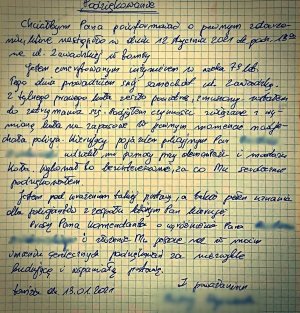 Podziękowanie
Chciałbym Pana poinformować o pewnym zdarzeniu,
które nastąpiło w dniu 12 stycznia 2021 ok godz. 13
na ul. Zawadzkiej w Łomży
Jestem emerytowanym inżynierem w wieku 79 lat.
Tego dnia prowadziłem swój samochód ul. Zawadzką.
Z tylnego prawego koła zeszło powietrze i zmuszony zostałem
do zatrzymania się. Podjąłem czynności związane z wy-
mianą koła na zapasowe. W pewnym momencie nadje-
chała policja. Kierujący pojazdem policyjnym Pan
udzielił mi pomocy przy demontażu i montażu
koła, wykonał to bezinteresownie, za co Mu serdecznie
podziękowałem
Jestem pod wrażeniem takiej postawy, a także pełen uznania
dla policjantów z zespołu którym Pan kieruje
Proszę Pana Komendanta o wyróżnienie Pana
i złożenie Mu jeszcze raz w moim
imieniu serdecznych podziękowań za niezwykle
budującą i wspaniałą postawę.
Z poważaniem
Łomża dn 13.01.2021